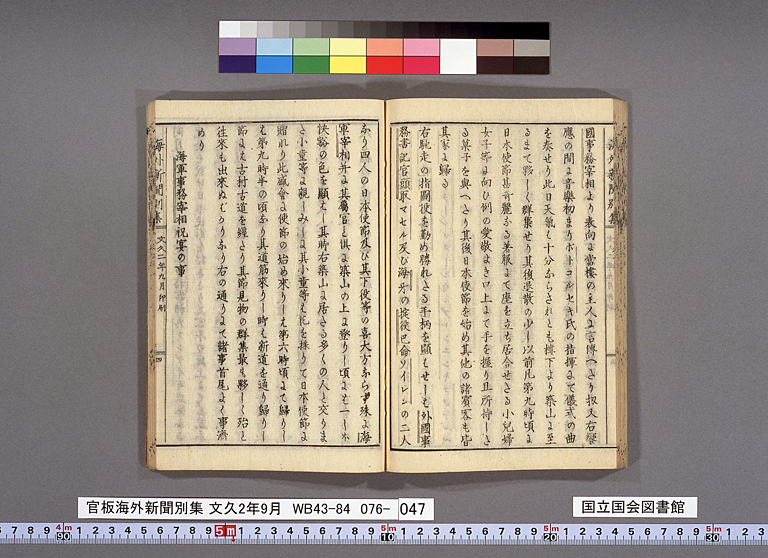 海外新聞別集
國事務宰相より表向に當樓の主人に言傳へたり扨又右饗
應の間に音樂初まりホトコルセキ氏の指揮にて儀式の曲
を奏せり此日天氣も十分ならされとも樓下より築山に至
るまて夥しく群集せり其後退散の少し以前凡第九時頃に
日本使節甚奇麗なる美服にて座を立ち居合せたる小兒婦
女子等に向ひ例の愛敬よき口上にて手を握り且所持した
る菓子を與へたり其後日本使節を始め其他の諸賓客も皆
其家に歸る
右馳走の指圖役を勤め勝れたる手柄を顯はせしは外國事
務書記官頭取マセル及び海舟の掟後巴侖ソイレンの二人
なり四人の日本使節及び其下役等の喜大方ならす殊に海
軍宰相并に其屬官と倶に築山の上に登りし頃には一しほ
快豁の色を顯はし其時右築山に居たる多くの人と交りま
た小童等に親しみしに其小童等も花を採りて日本使節に
贈れり此盛會に使節の始め來りしは第六時頃にて歸りし
は第九時半の頃なり其道筋來りし時は新道を通り歸りし
節には古村古道を經たり其節見物の群集最も夥しく殆と
往來も出來ぬばかりなり右の通りにて諸事首尾よく事濟
めり
海軍事務宰相祝宴の事
海外新聞別集 文久二年九月 印刷 四
官板海外新聞別集 文久2年9月 WB43-84 076- 047
国立国会図書館